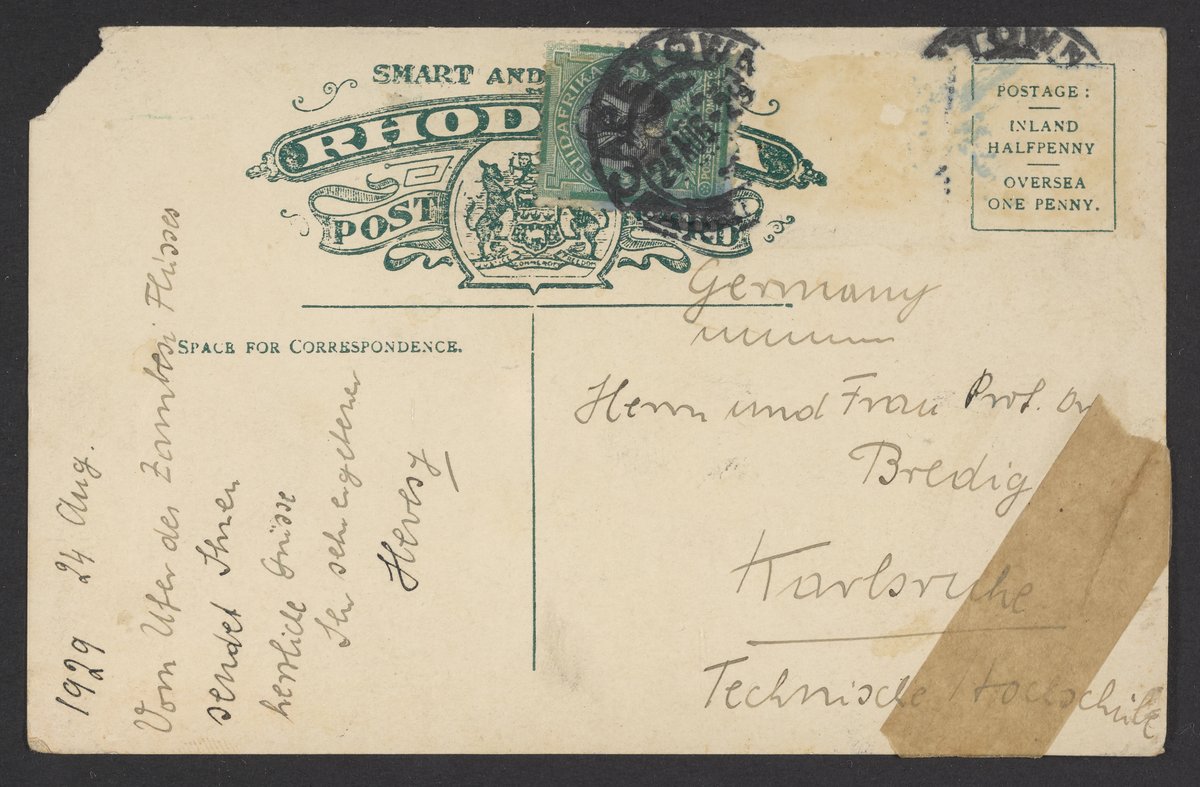 SMART AND
RHOD
POST
ARD
JUSTICE COMMERCE FREEDOM
SUIDAFRIKA
POSSEEL
CAPETOWN
24 AUG 29
TOWN
POSTAGE:
INLAND
HALFPENNY
OVERSEA
ONE PENNY.
SPACE FOR CORRESPONDENCE.
1929 24 Aug.
Vom Ufer des Zambesi Flusses
sendet Ihnen
herzliche Grüsse
Ihr sehr ergebener
Hevesy
Germany
Herrn und Frau Prof. Dr
Bredig
Karlsruhe
Technische Hochschule